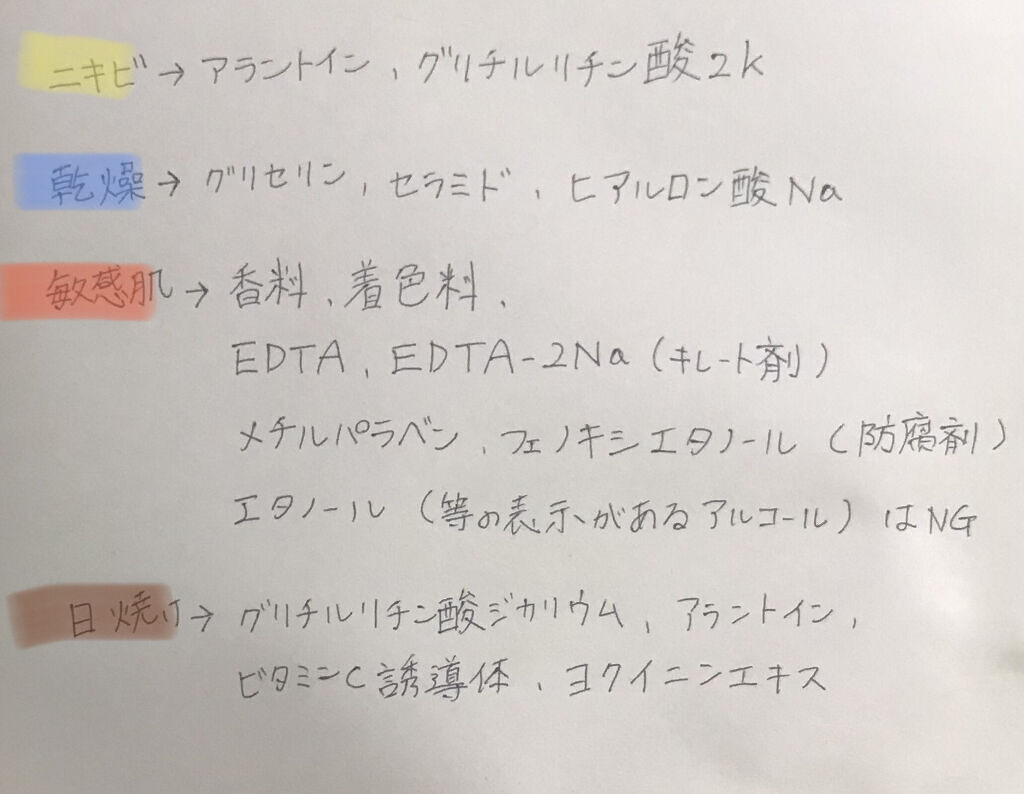 ニキビ→アラントイン、グリチルリチン酸2k
乾燥→グリセリン、セラミド、ヒアルロン酸Na
敏感肌→香料、着色料、
EDTA、EDTA-2Na(キレート剤)
メチルパラベン、フェノキシエタノール(防腐剤)
エタノール(等の表示があるアルコール)はNG
日焼け→グリチルリチン酸ジカリウム、アラントイン、
ビタミンC誘導体、ヨクイニンエキス